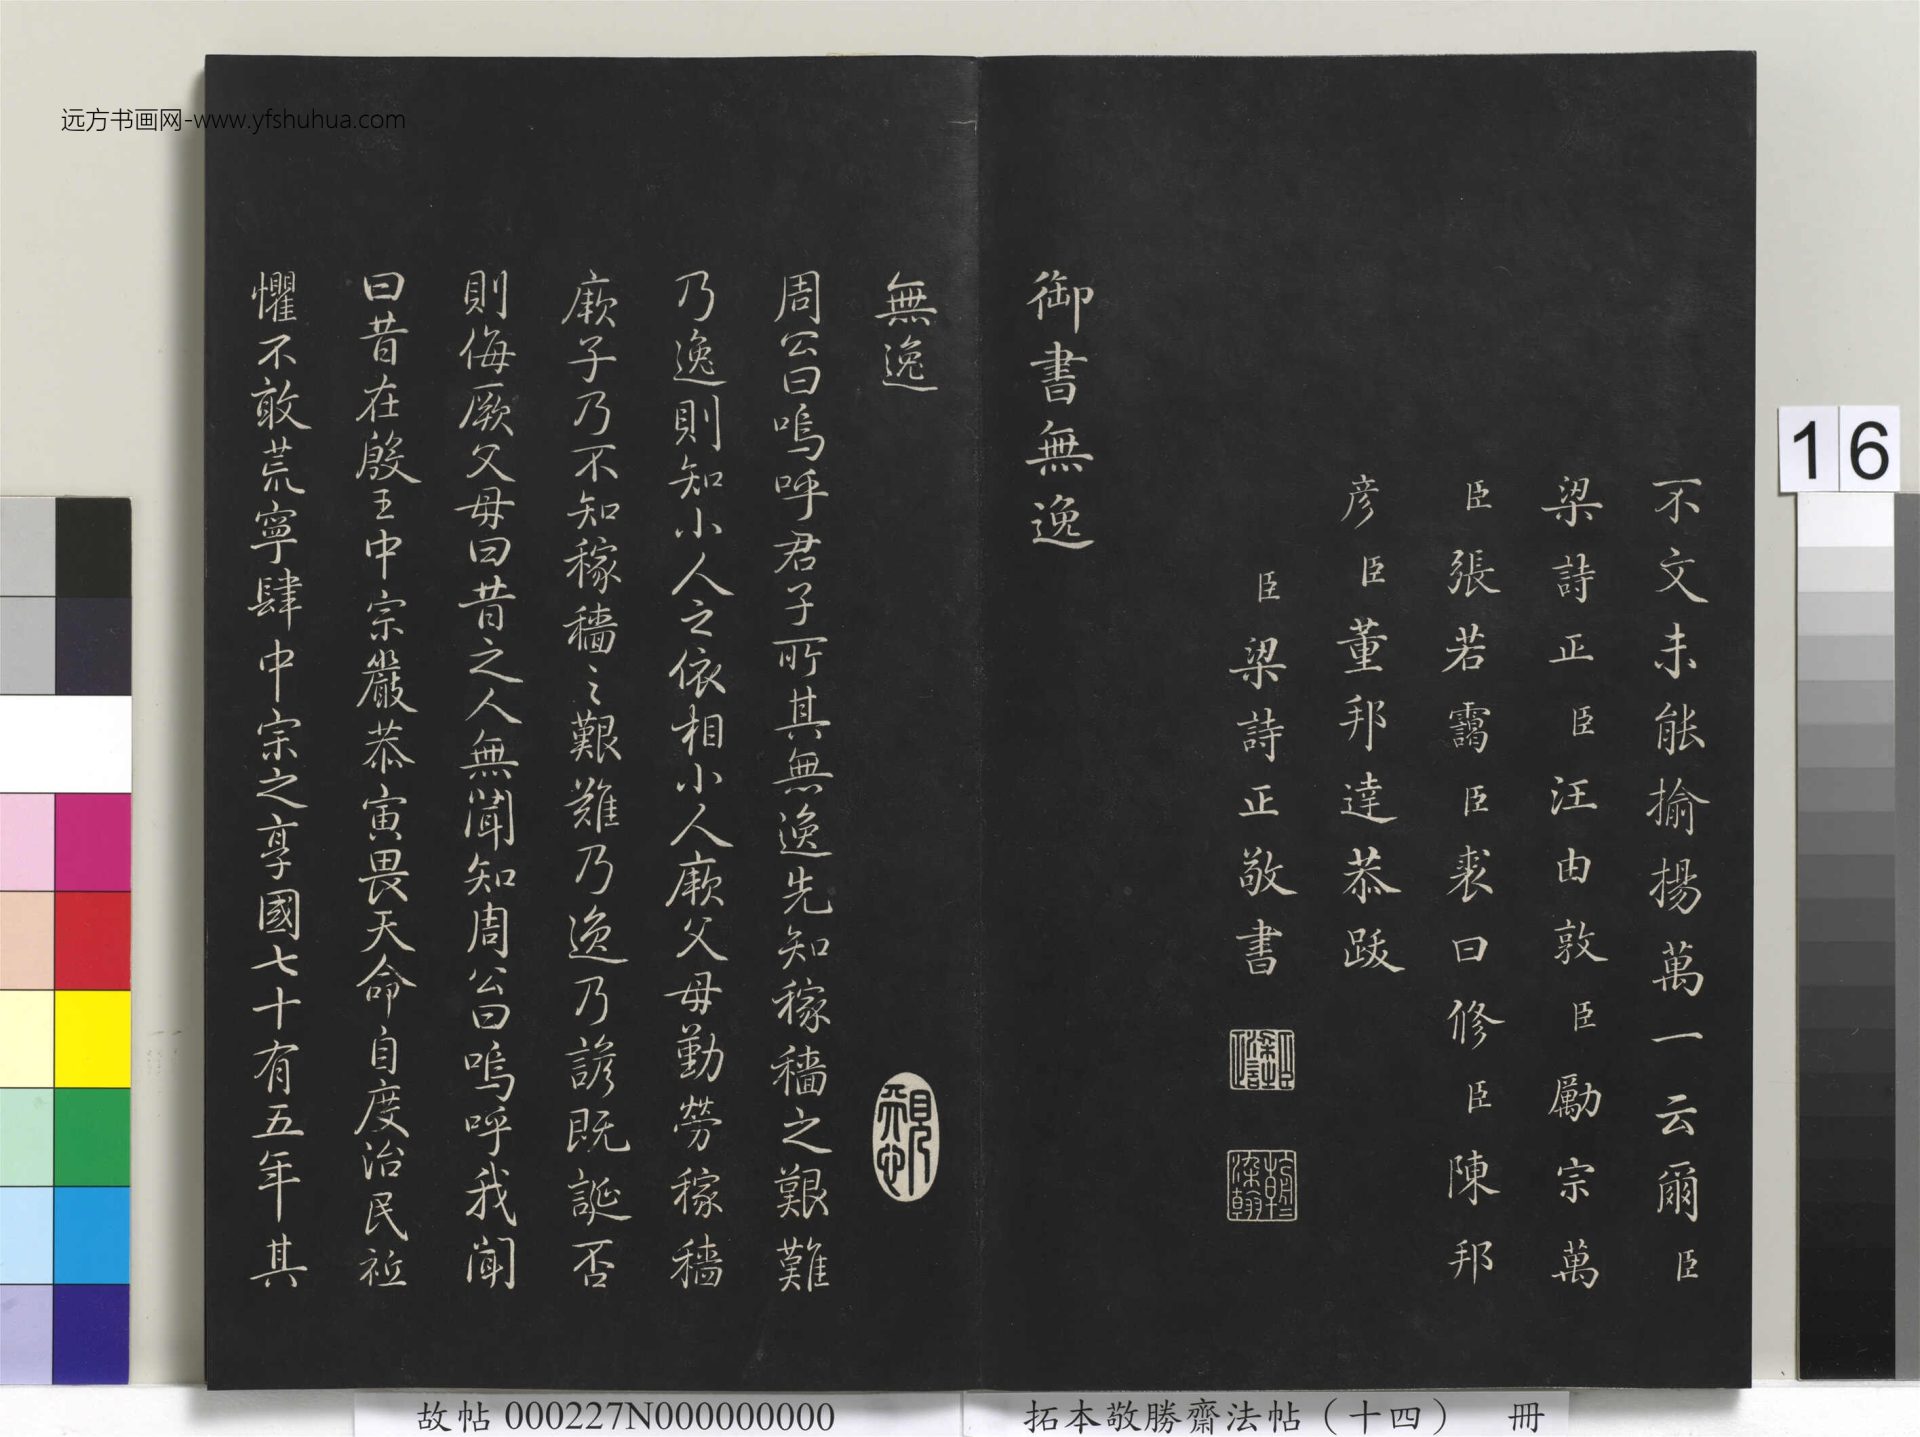 远方书画网-www.yfshuhua.com
不文未能揄揚萬一云爾臣
梁詩正臣汪由敦臣勵宗萬
臣張若靄臣裘曰修臣陳邦
彦臣董邦達恭跋
臣梁詩正敬書
御書無逸
無逸
周公曰嗚呼君子所其無逸先知稼穡之艱難
乃逸則知小人之依相小人厥父母勤勞稼穡
厥子乃不知稼穡之艱難乃逸乃諺既誕否
則侮厥父母曰昔之人無聞知周公曰嗚呼我聞
曰昔在殷王中宗嚴恭寅畏天命自度治民祗
懼不敢荒寧肆中宗之享國七十有五年其
16
故帖 000227N000000000
拓本敬勝齋法帖（十四） 冊